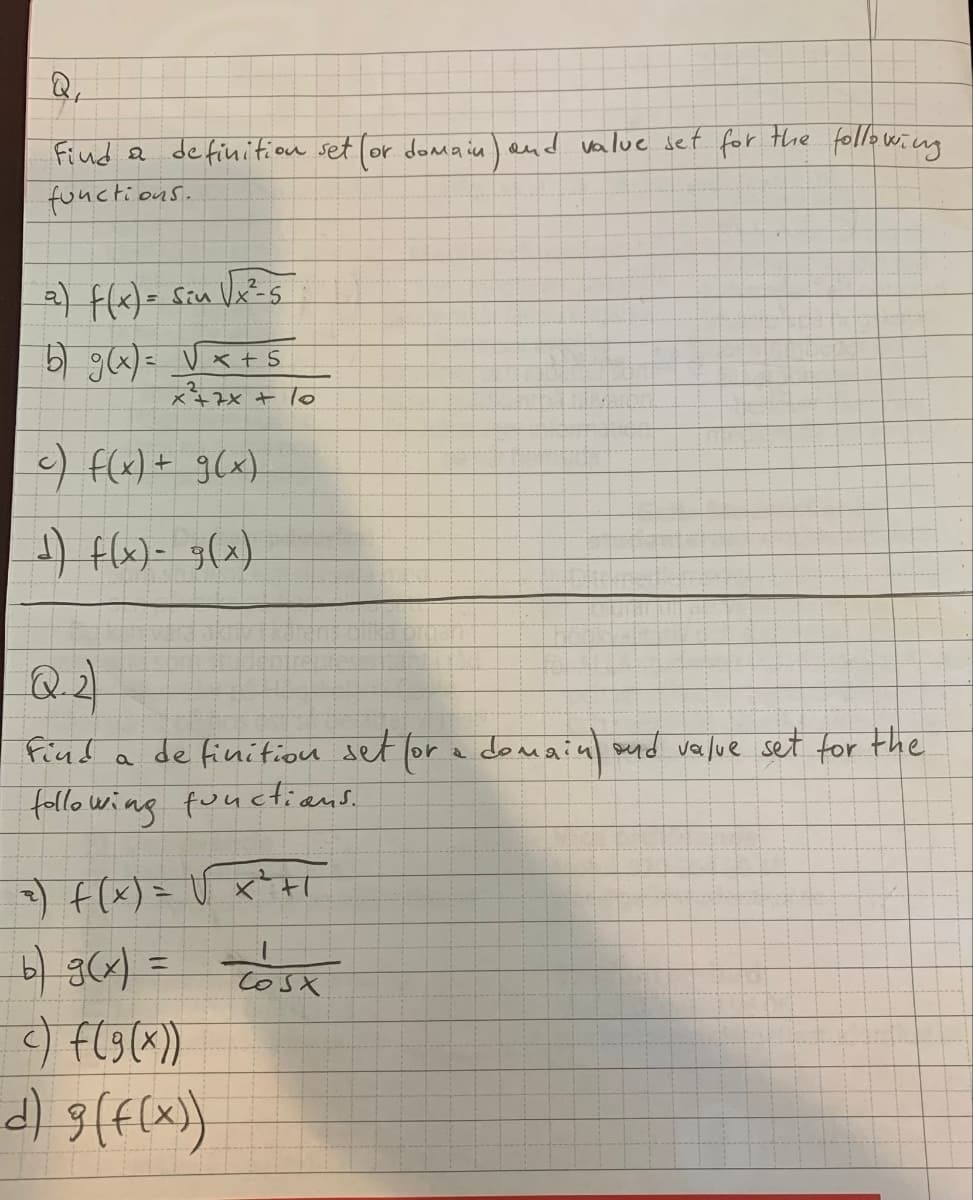 Q1
Find a definition set (or domain) and value set for the following
functions.
a) f(x) = sin √x²-5
b) g(x) = √x+5
x²+7x + 10
c) f(x) + g(x)
d) f(x) - g(x)
Q.2)
Find a definition set (or a domain) and value set for the
following functions.
a) f(x) = √x²+1
b) g(x) = 1
cosx
c) f(g(x))
d) g(f(x))